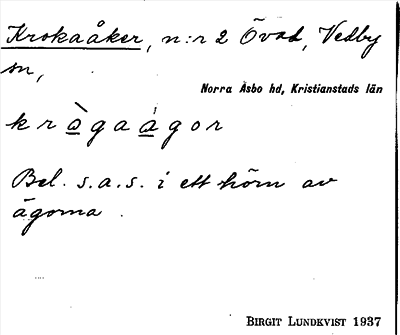 Krokaåker, n:r 2 Övad, Vedby
sn,
Norra Åsbo hd, Kristianstads län
k r ò̲ g a a̲̍ g o r
Bel. s.a.s. i ett hörn av
ägorna.
BIRGIT LUNDKVIST 1937